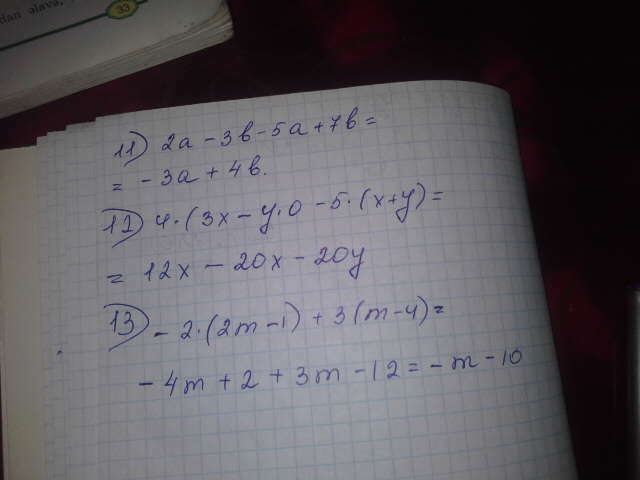 11) 2a - 3b - 5a + 7b =
= -3a + 4b.
12) 4·(3x - y·0 - 5·(x+y) =
= 12x - 20x - 20y
13) -2·(2m-1) + 3(m-4) =
-4m + 2 + 3m - 12 = -m - 10
33